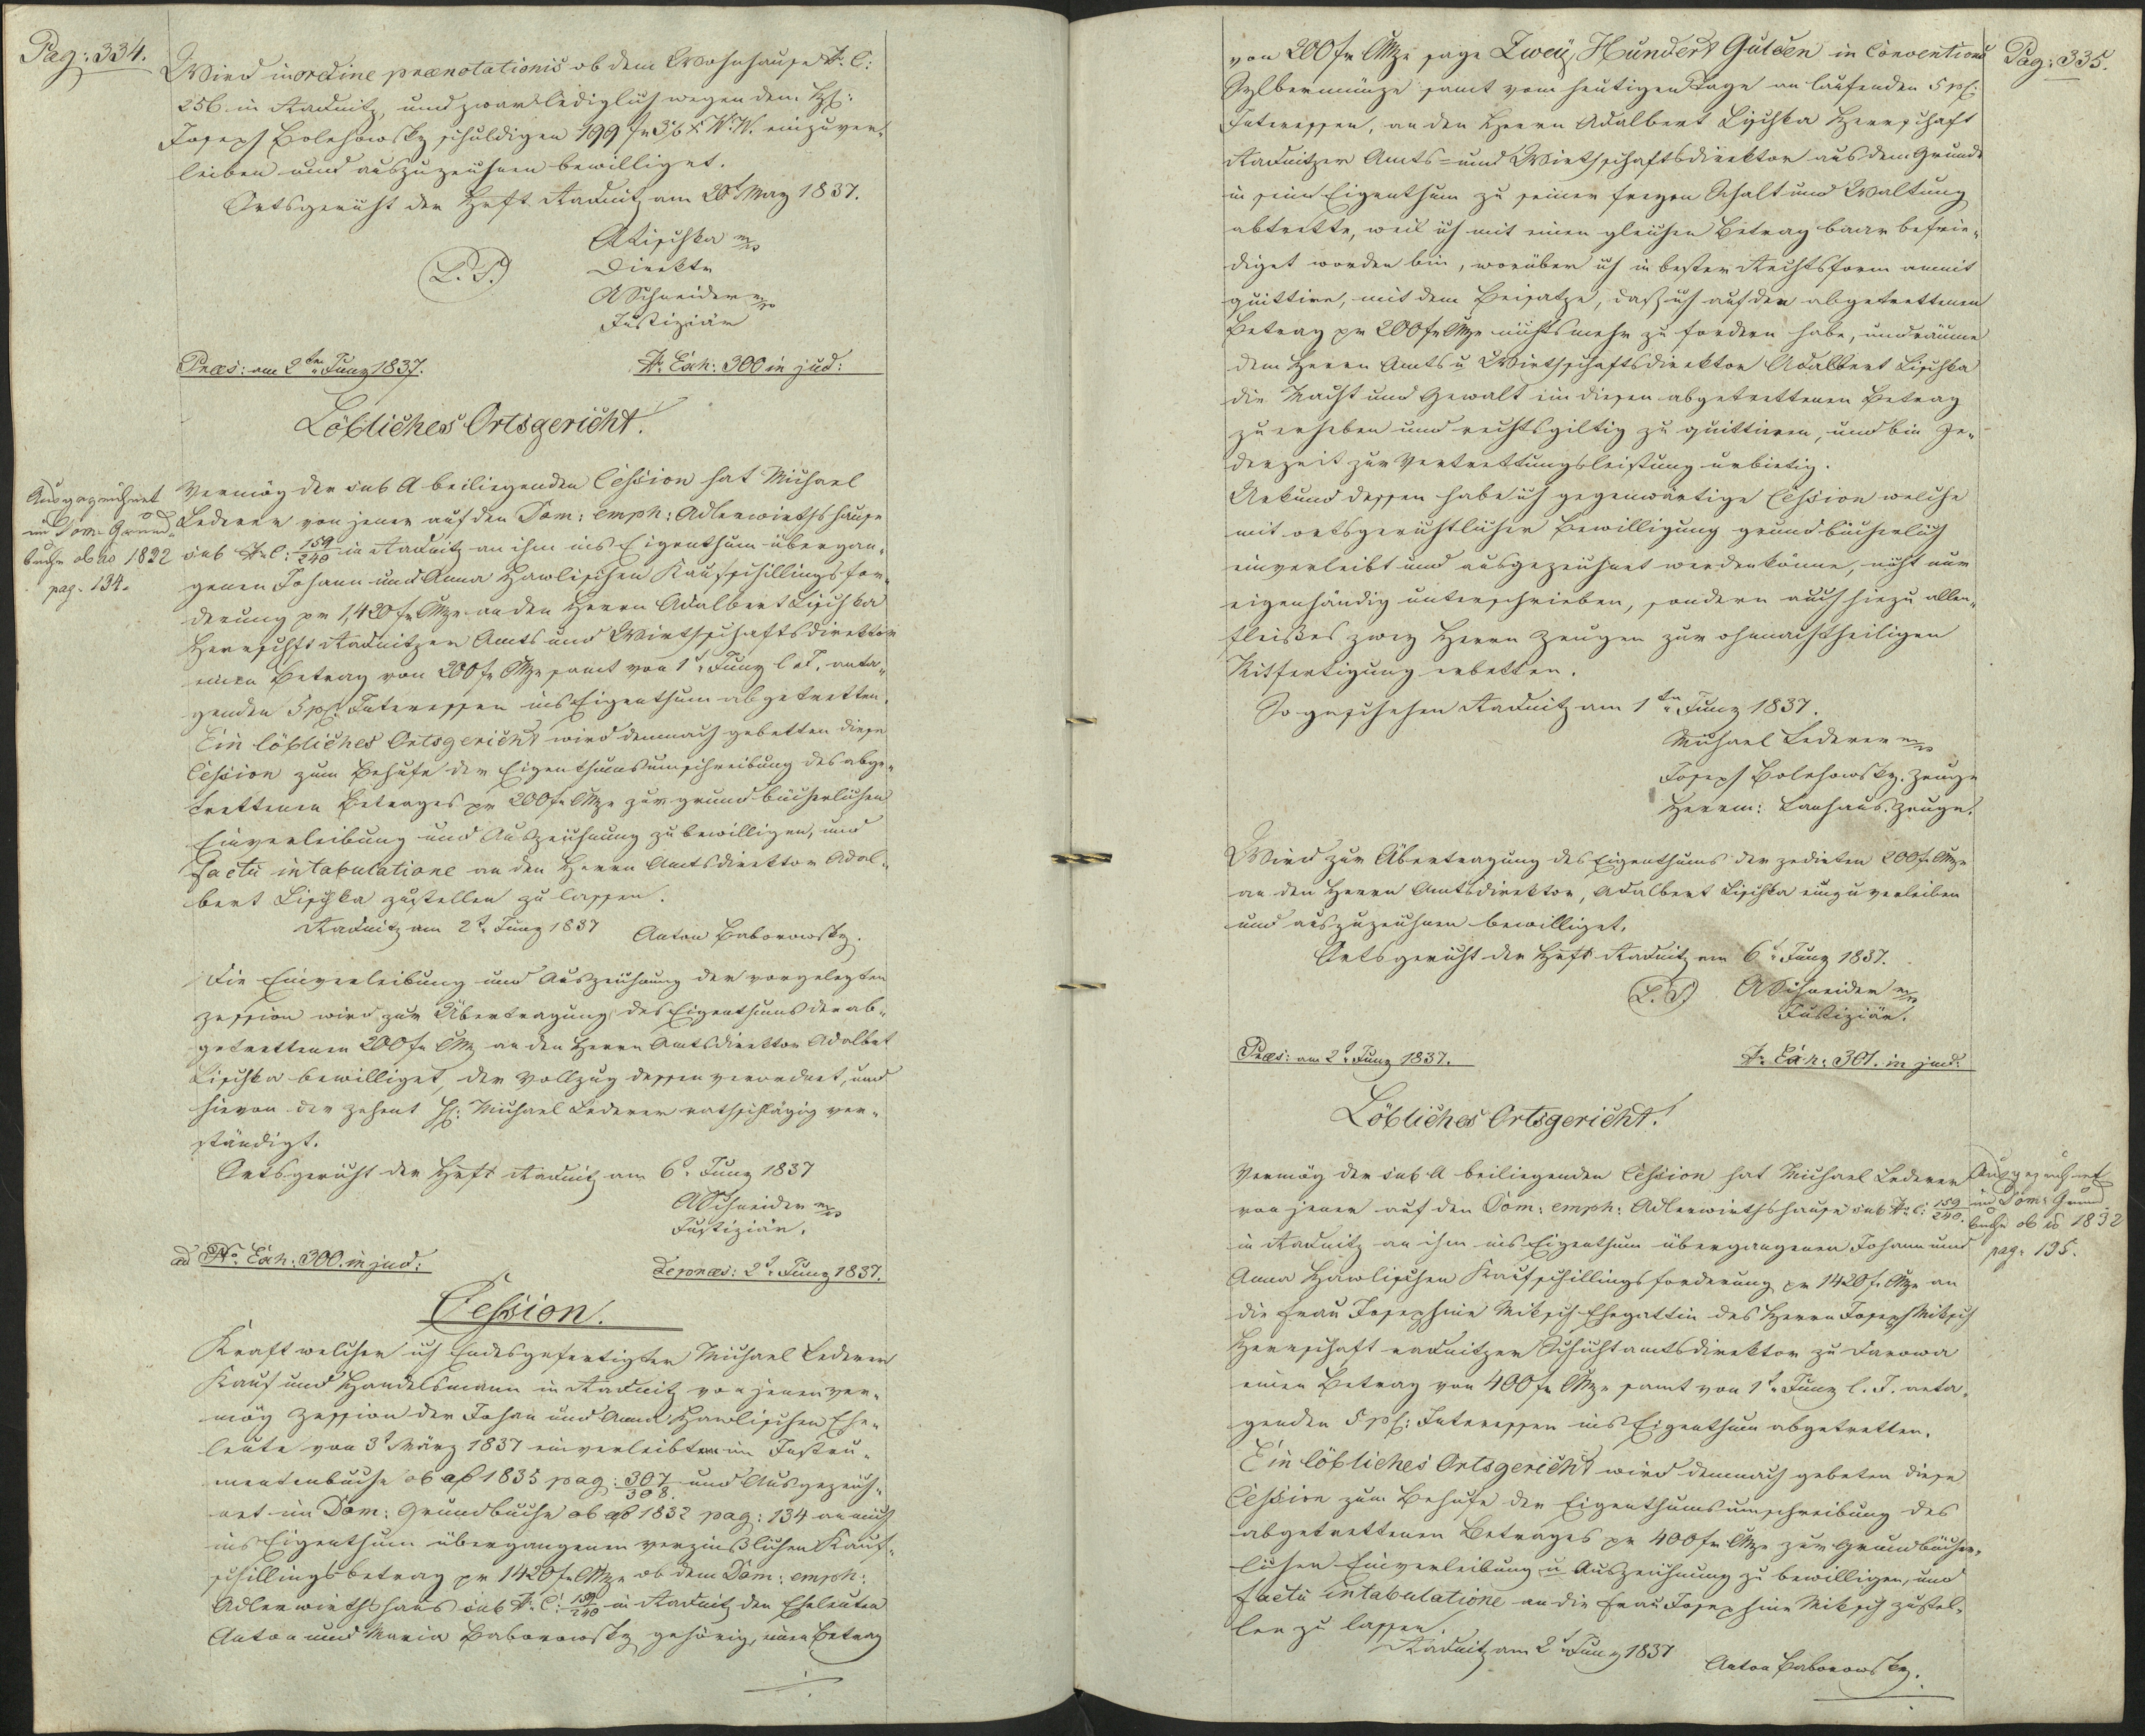 Pag: 334.
Wird in ordine prænotationis ob dem Wohnhause N. C:
256 in Radnitz, und zwar lediglich wegen dem H:
Joseph Bolehowsky schuldigen 199 fr 36 x W. W. einzuver„
leiben und auszuzeichnen bewilliget.
Ortsgericht der Hrft Radnitz am 20t May 1837.
ALischka m/p
L. S.
Direktr
ASchneider m/p
Justiziär
Præs: am 2ten Juny 1837.
N. Exh: 300 in jud:
Löbliches Ortsgericht!
Ausgezeichnet
im Dom. Grund„
buche ob No 1832
pag. 134.
Vermög der sub A beiliegenden Cession hat Michael
Lederer von jener auf den Dom: emph: Adlerwirthshause
sub N. C: 159/240 in Radnitz an ihm ins Eigenthum übergan„
genen Johann und Anna Hawlischen Kaufschillingsfor„
derung pr 1,420 fr CMze an den Herrn Adalbert Lischka
Herrschft Radnitzer Amts und Wirthschaftsdirektor
einen Betrag von 200 fr CMze samt von 1t Juny l. J. anta„
genden 5 pf: Interessen ins Eigenthum abgetretten.
Ein löbliches Ortsgericht wird demnach gebetten diese
Cession zum Behufe der Eigenthumsumschreibung des abge„
trettenen Betrages pr 200 fr CMze zur grundbücherlichen
Einverleibung und Auszeichnung zu bewilligen, und
factu intabulatione an den Herrn Amtsdirektor Adal„
bert Lischka zustellen zu lassen.
Radnitz am 2t Juny 1837
Anton Baborowsky.
Die Einverleibung und Auszeichnung der vorgelegten
Zession wird zur Übertragung des Eigenthums der ab„
getrettenen 200 fr CMz an den Herrn Amtsdirektor Adalbet
Lischka bewilliget, der Vollzug dessen verordnet, und
hievon der Zedent H: Michael Lederer rathschlägig ver„
ständigt.
Ortsgericht der Hrft Radnitz am 6t Juny 1837
ASchneider m/p
Justiziär.
ad No Exh: 300. in jud:
de præs: 2t Juny 1837.
Cession.
Kraft welcher ich Endesgefertigter Michael Lederer
Kauf und Handelsmann in Radnitz von jenem ver„
mög Zession der Johan und Anna Hawlischen Ehe„
leute von 3t März 1837 einverleibten im Instru„
mentenbuche ob ao 1835 pag: 307/308. und Ausgezeich„
net im Dom: Grundbuche ob ao 1832 pag: 134 an mich
ins Eigenthum übergangenen verzinßlichen Kauf„
schillingsbetrag pr 1420 fr CMze ob dem Dom: emph:
Adlerwirthshaus sub N. C: 159/240 in Radnitz den Eheleuten
Anton und Maria Baborowsky gehörig, einen Betrag
Pag: 335.
von 200 fr CMze sage Zwey Hundert Gulden in Conventions
Sylbermünze samt vom heutigen Tage an laufenden 5 pf:
Interessen, an den Herrn Adalbert Lischka Herrschaft
Radnitzer Amts= und Wirthschaftsdirektor aus dem Grunde
in sein Eigenthum zu seiner freyen Schalt und Waltung
abtrette, weil ich mit einen gleichen Betrag baar befrie„
diget worden bin, worüber ich in bester Rechtsform anmit
quittire, mit dem Beisatze, daß ich auf den abgetrettenen
Betrag pr 200 fr CMze nichts mehr zu fordern habe, und räume
dem Herrn Amts u Wirthschaftsdirektor Adalbert Lischka
die Macht und Gewalt ein diesen abgetrettenen Betrag
zu erheben und rechtsgiltig zu quittiren, und bin je„
derzeit zur Vertrettungsleistung urbietig.
Urkund dessen habe ich gegenwärtige Cession welche
mit ortsgerichtlicher Bewilligung grundbücherlich
einverleibt und ausgezeichnet werden könne, nicht nur
eigenhändig unterschrieben, sondern auch hiezu allen„
fleißes zwey Herrn Zeugen zur ohnnachtheiligen
Mitfertigung erbetten.
So geschehen Radnitz am 1ten Juny 1837.
Michael Lederer m/p
Joseph Bolehowsky. Zeuge
Herrm: Lauhaus. Zeuge.
Wird zur Übertragung des Eigenthums der zedirten 200 fr CMze
an den Herrn Amtsdirektor, Adalbert Lischka einzuverleiben
und auszuzeichnen bewilliget.
Ortsgericht der Hrft Radnitz am 6t Juny 1837.
L. S.
ASchneider m/p
Justiziär.
Præs: am 2t Juny 1837.
N. Exh: 301. in jud:
Löbliches Ortsgericht!
Ausgezeichnet
im Dom: Grund„
buche ob No 1832
pag: 135.
Vermög der sub A beiliegenden Cession hat Michael Lederer
von jener auf den Dom: emph: Adlerwirthshause sub N. C: 159/240.
in Radnitz an ihm ins Eigenthum übergangenen Johann und
Anna Hawlischen Kaufschillingsforderung pr 1420 fr CMze an
die Frau Josephine Miksch Ehegattin des Herrn Joseph Miksch
Herrschaft radnitzer Schichtamtsdirektor zu Darowa
einen Betrag von 400 fr CMze samt von 1t Juny l. J. anta„
genden 5 pf: Interessen ins Eigenthum abgetretten.
Ein löbliches Ortsgericht wird demnach gebeten diese
Cession zum Behufe der Eigenthumsumschreibung des
abgetrettenen Betrages pr 400 fr CMze zur grundbücher„
lichen Einverleibung u Auszeichnung zu bewilligen, und
factu intabulatione an die Frau Josephine Miksch zustel„
len zu lassen.
Radnitz am 2t Juny 1837
Anton Baborowsky.